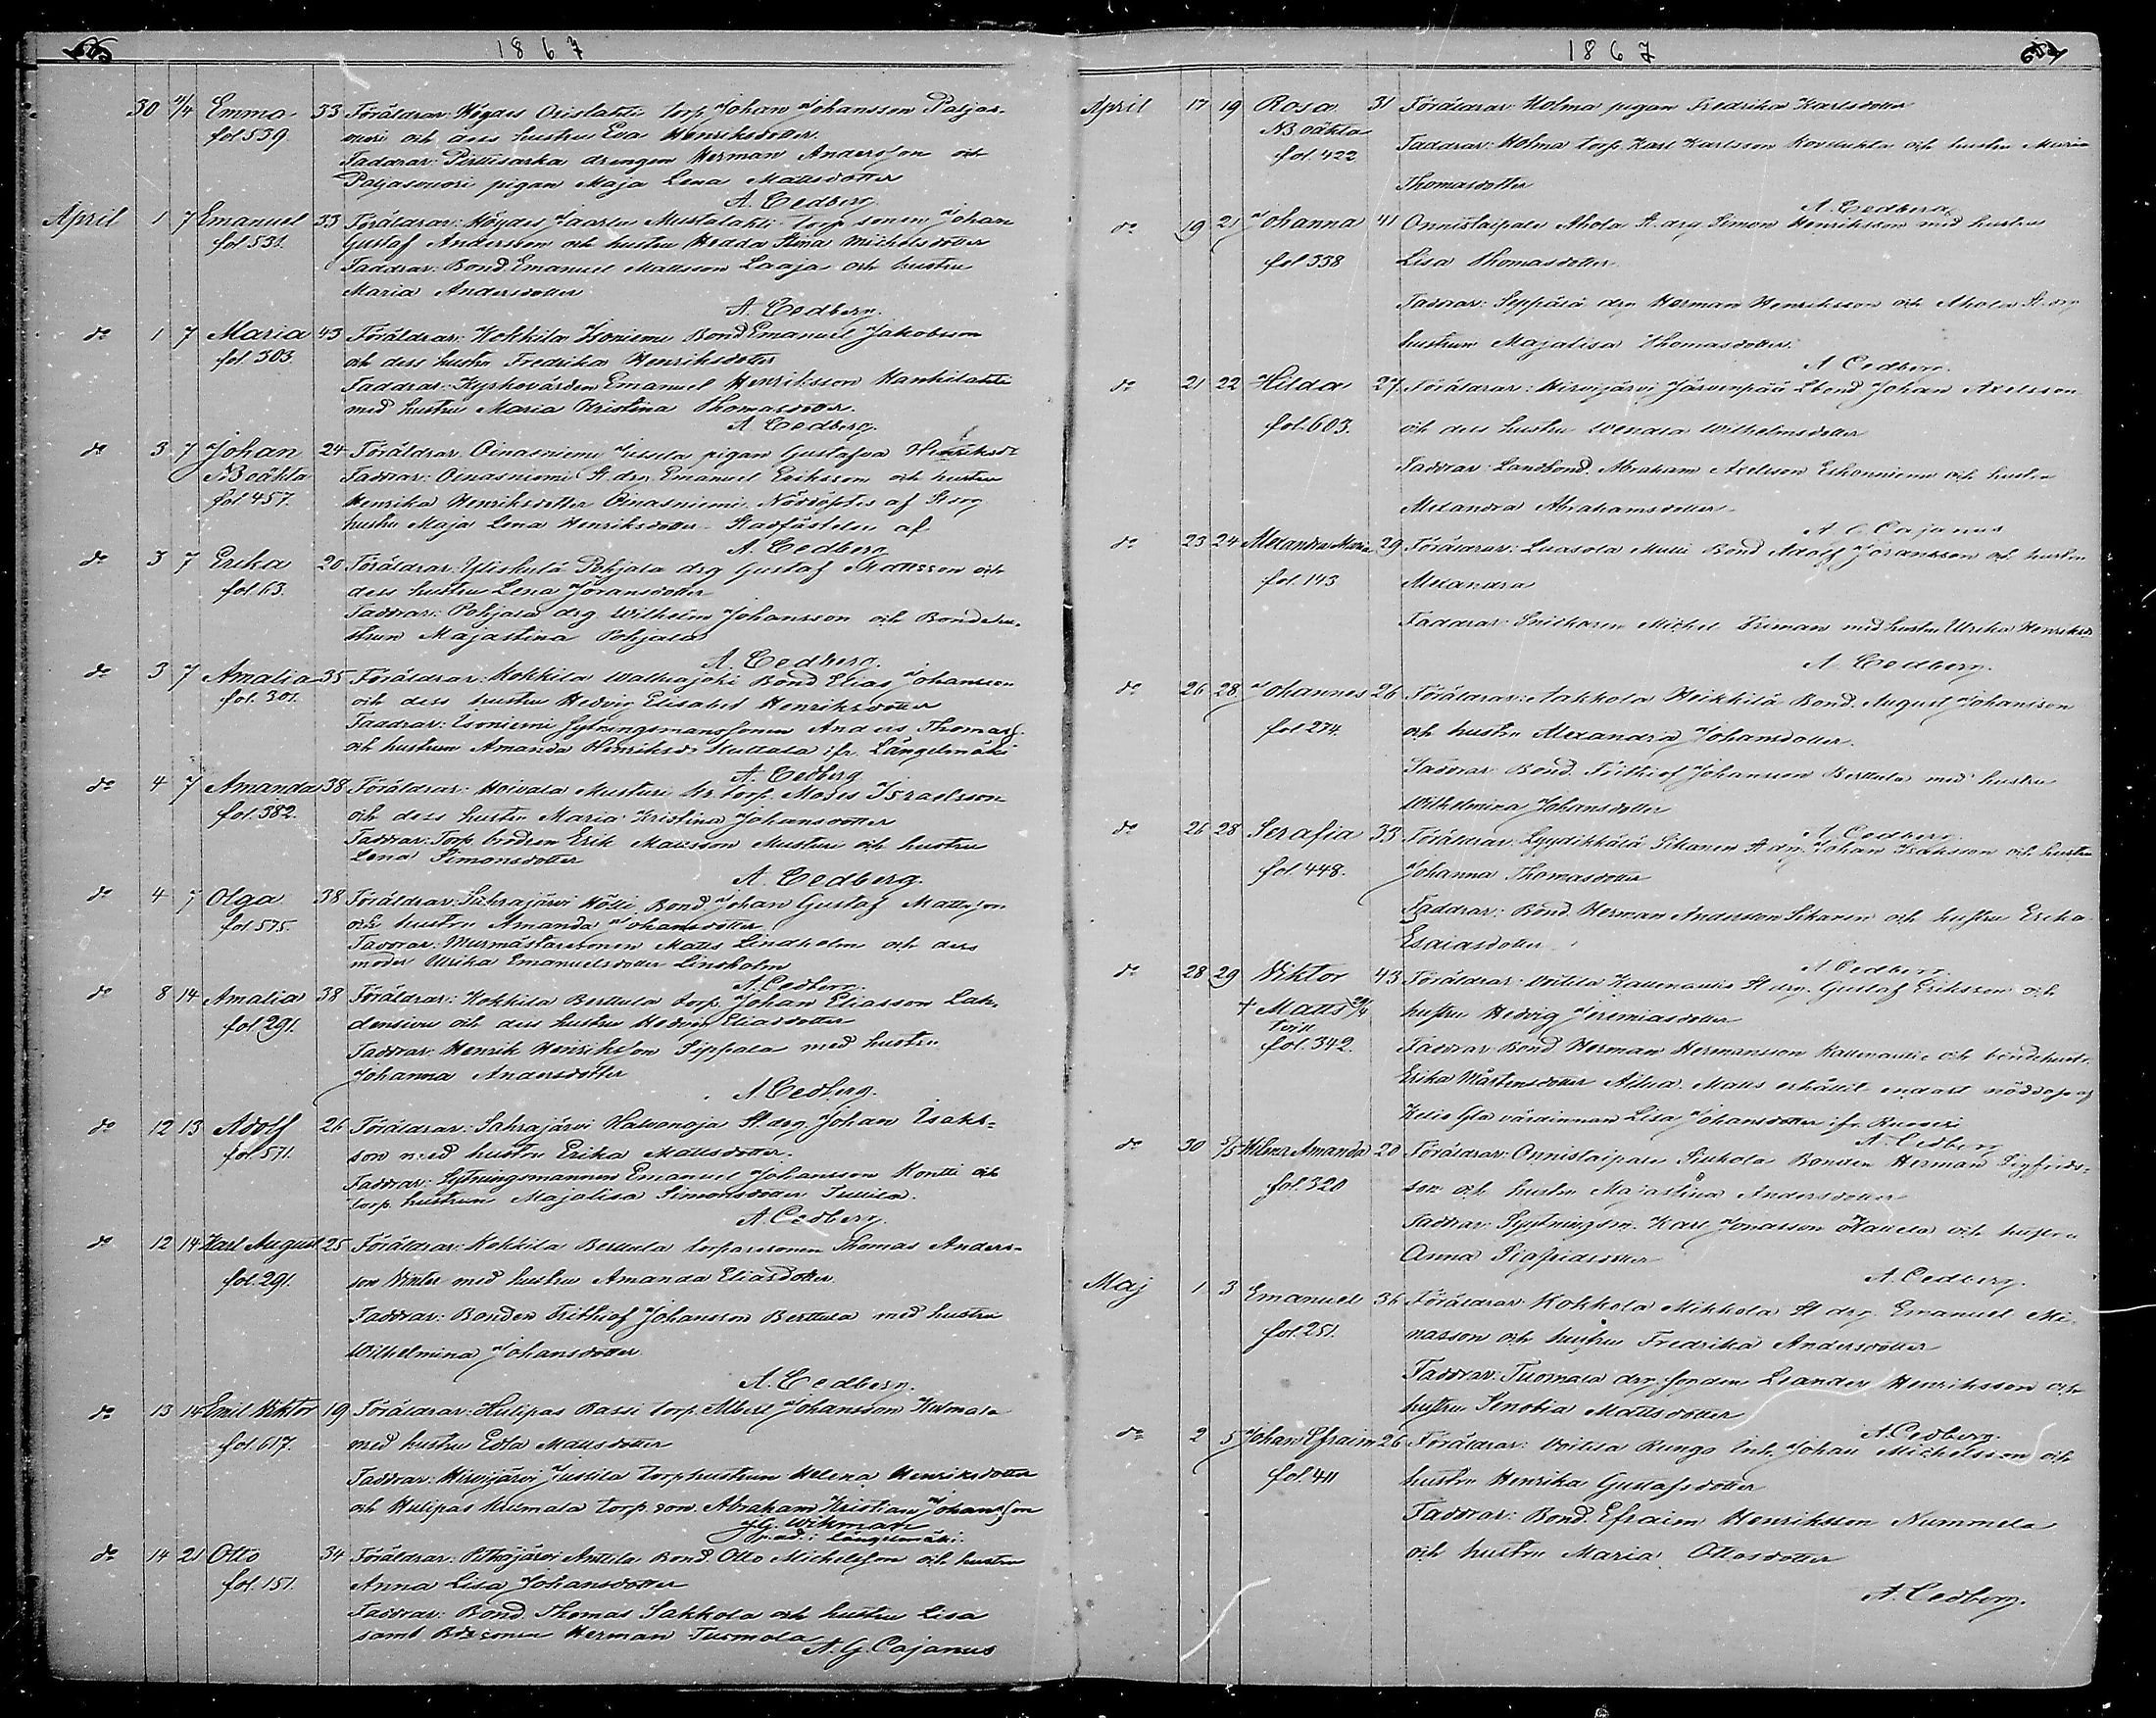 1867
30 1/4 Emma 33 Föräldrar: Höydes Orislahti torp. Johan Johansson Paljas-
fol 539. vuori och dess hustru Eva Henriksdotter.
Faddrar: Perttisarka drengen Herman Andersson och
Paljasvuori pigan Maja Lena Mattsdotter
A. Cedberg.
April 1 7 Emanuel 33 Föräldrar: Höydes Jaartu Mustalahti torp sonen Johan
fol 531. Gustaf Andersson och hustru Stina Michelsdotter
Faddrar: Bond Emanuel Mattsson Laaja och hustru
Maria Andersdotter
A. Cedberg.
do 1 7 Maria 43 Föräldrar: Kokkila Isoniemi Bond Emanuel Jakobsson
fol. 303. och dess hustru Fredrika Henriksdotter
Faddrar: Kyrkovärden Emanuel Henriksson Hankilahti
med hustru Maria Kristina Thomasdotter.
A. Cedberg.
do 3 7 Johan 24 Föräldrar: Oinasniemi Jussila pigan Gustafva Henriksdr
NB oäkta Faddrar: Oinasniemi St. drg Emanuel Eriksson och hustru
fol 457. Henrika Henriksdotter Oinasniemi. Nöddöptes af St drg
hustru Maja Lena Henriksdotter. Stadfästelse af
A. Cedberg
do 3 7 Erika 20 Föräldrar: Yliskulä Pohjala drg Gustaf Mattsson och
fol 63. dess hustru Lena Göransdotter
Faddrar: Pohjala drg Wilhelm Johansson och Bondehu-
strun Majastina Pohjala
A. Cedberg.
do 3 7 Amalia 35 Föräldrar: Kokkila Walkiajoki Bond Elias Johansson
fol. 301. och dess hustru Hedvig Elisabet Henriksdotter
Faddrar: Isoniemi Sytningsmanssonen Anders Thomass.
och hustrun Amanda Henriksdr Kuttala ifr. Längelmäki
A. Cedberg
do 4 7 Amanda 38 Föräldrar: Hoivala Musturi torp. Moses Israelsson
fol. 382. och dess hustru Maria Kristina Johansdotter
Faddrar: Torp. brodren Erik Matisson Musturi och hustru
Lena Simonsdotter
A. Cedberg.
do 4 7 Olga 38 Föräldrar: Sahrajärvi Hölli Bond Johan Gustaf Mattsson
fol 575. och hustru Amanda Johansdotter
Faddrar: Murmästaresonen Matts Lindholm och dess
moder Ulrika Emanuelsdotter Lindholm
A. Cedberg.
do 8 14 Amalia 38 Föräldrar: Kokkila Berttula torp. Johan Eliasson Lah-
fol. 291. densivu och dess hustru Hedvig Eliasdotter
Faddrar: Henrik Henriksson Sippala med hustru
Johanna Andersdotter
A. Cedberg.
do 12 13 Adolf 26 Föräldrar: Sahrajärvi Halvonoja St. drg. Johan Isaks-
fol. 571. son med hustru Erika Mattsdotter.
Faddrar: Sytningsmannen Emanuel Johansson Kontti och
torp. hustrun Majalisa Simonsdotter Tullila.
A. Cedberg.
do 12 14 Karl August 25 Föräldrar: Kokkila Berttula torparesonen Thomas Anders-
fol. 291. son Winter med hustru Amanda Eliasdotter.
Faddrar: Bonden Frithiof Johansson Berttula med hustru
Wilhelmina Johansdotter
A. Cedberg.
do 13 14 Emil Viktor 19 Föräldrar: Hulipas Rassi torp. Albert Johansson Kulmala
fol. 617. med hustru Edla Mattsdotter
Faddrar: Hirvijärvi Jussila torphustrun Helena Henriksdotter
och Hulipas Kulmala torp. son. Abraham Kristian Johansson
G. Wikman
p. ad. i Längelmäki.
do 14 21 Otto 34 Föräldrar: Pitkäjärvi Anttila Bond Otto Michelsson och hustru
fol. 151. Anna Lisa Johansdotter
Faddrar: Bond. Thomas Sakkola och hustru Lisa
samt Bdesonen Herman Tuomola
A. G. Cajanus
1867
April 17 19 Rosa 31 Föräldrar: Holma pigan Fredrika Karlsdotter
NB oäkta
fol. 422 Faddrar: Holma torp. Karl Karlsson och hustru Maria
Thomasdotter
A. Cedberg.
do 19 21 Johanna 41 Onnistaipale Ahola St. drg. Simon Henriksson med hustru
fol 338 Lisa Thomasdotter.
Faddrar: Seppälä drg Herman Henriksson och Ahola St. drg
hustrun Majalisa Thomasdotter.
A Cedberg.
do 21 22 Hilda 27 Föräldrar: Hirvijärvi Järvenpää Lbond Johan Axelsson
fol. 603. och dess hustru Wendla Wilhelmsdotter
Faddrar: Landbond. Abraham Axelsson Eskonniemi och hustru
Alexandra Abrahamsdotter
A. G. Cajanus
do 23 24 Alexandra Maria 29 Föräldrar: Luasola Mulli Bond Adolf Göransson och hustru
fol. 143 Alexandra
Faddrar: Snickaren Michel Friman med hustru Ulrika Henriksdr
A. Cedberg.
do 26 28 Johannes 26 Föräldrar: Aakkola Heikkilä Bond. August Johansson
fol 274. och hustru Alexandra Johansdotter.
Faddrar: Bond. Frithiof Johansson Berttula med hustru
Wilhelmina Johansdotter
A. Cedberg.
do 26 28 Serafia 33 Föräldrar: Lyydikkälä Sikanen St drg. Johan Isaksson och hustru
fol. 448. Johanna Thomasdotter
Faddrar: Bond. Herman Andersson Sikanen och hustru Erika
Esaiasdotter
A. Cedberg.
do 28 29 Viktor 43 Föräldrar: Voitila Kallenautio St drg. Gustaf Eriksson och
† Matts 29/4 hustru Hedvig Jeremiasdotter
tvill
fol. 342. Faddrar: Bond Herman Hermansson Kallenautio och bondehustr.
Erika Mårtensdotter Matts erhållit endast nöddop af
värdinnan Lisa Johansdotter ifr. Ruovesi
A. Cedberg
do 30 5/5 Hilma Amanda 20 Föräldrar: Onnistaipale Siukola Bonden Herman Sigfrids-
fol. 320 son och hustru Majastina Andersdotter
Faddrar: Sytningsm. Karl Jonasson och hustru
Anna Sigfridsdotter
A. Cedberg.
Maj 1 3 Emanuel 36 Föräldrar: Kokkola Mikkola St drg. Emanuel Mi-
fol. 251. nasson och hustru Fredrika Andersdotter
Faddrar: Tuomala drg. sonen Leander Henriksson och
hustru Senobia Mattsdotter
A. Cedberg.
do 2 5 Johan Efraim 26 Föräldrar: Voitila Rungo Inh. Johan Michelsson och
fol. 411 hustru Henrika Gustafsdotter
Faddrar: Bond. Efraim Henriksson Nummela
och hustru Maria Ottosdotter
A. Cedberg.